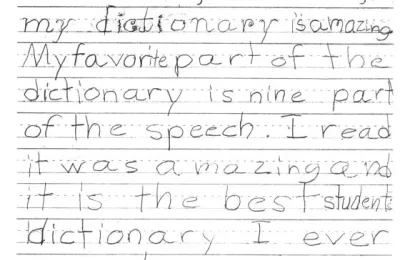 my dictionary is amazing
My favorite part of the
dictionary is nine part
of the speech. I read
it was amazing and
it is the best student
dictionary I ever